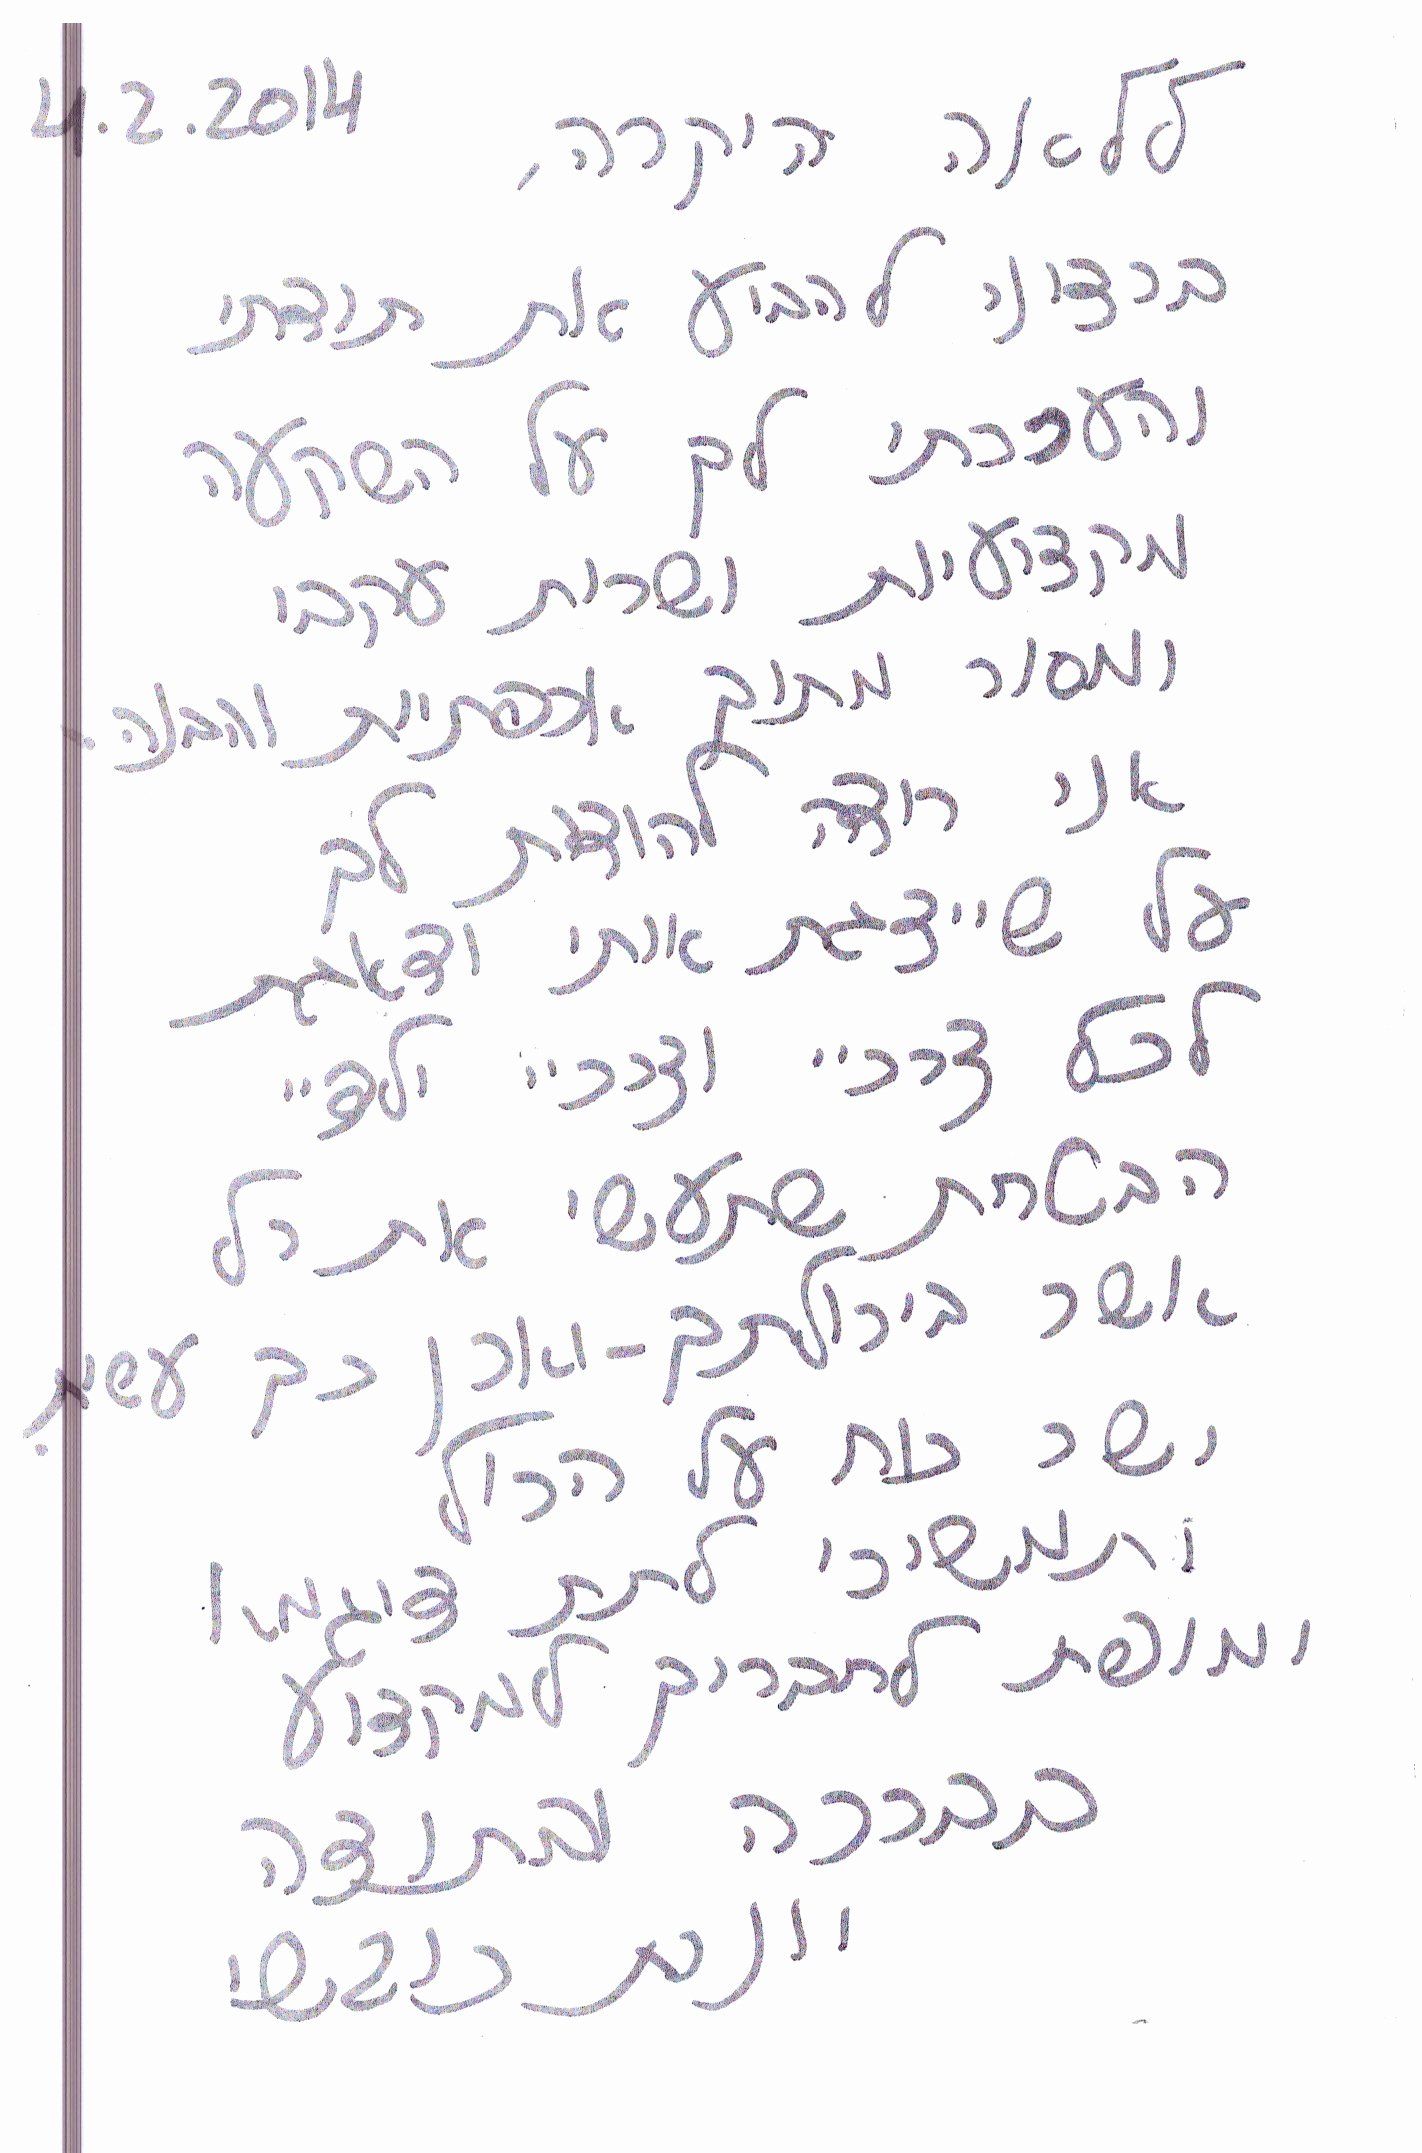 4.2.2014
ללאה היקרה,
ברצוני להביע את תודתי
והערכתי לך על השקעה
מקצועית ושרות עקבי
ומסור מתוך אכפתיות והבנה.
אני רוצה להודות לך
על שייצגת אותי ודאגת
לכל צרכיי וצרכיי ילדיי
הבטחת שתעשי את כל
אשר ביכולתך - ואכן כך עשית.
ישר כוח על הכול
ותמשיכי לתת דוגמא
ומופת לחבריך למקצוע
בברכה ובתודה
יוונת כובשי